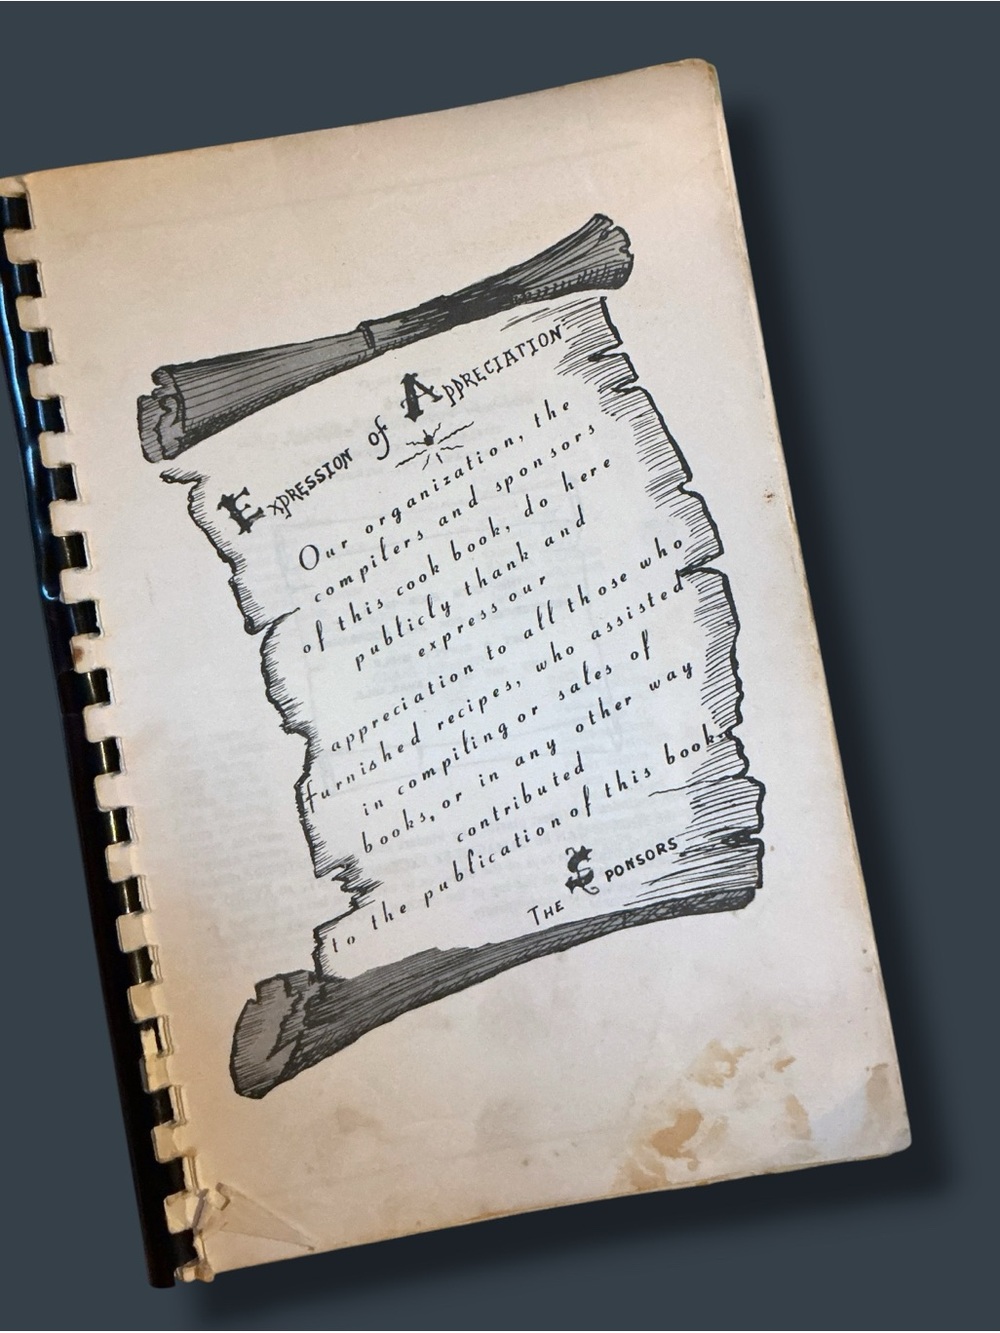 Expression of Appreciation
Our organization, the
compilers and sponsors
of this cook book, do here
publicly thank and
express our
appreciation to all those who
furnished recipes, who assisted
in compiling or sales of
books, or in any other way
contributed
to the publication of this book.
The Sponsors